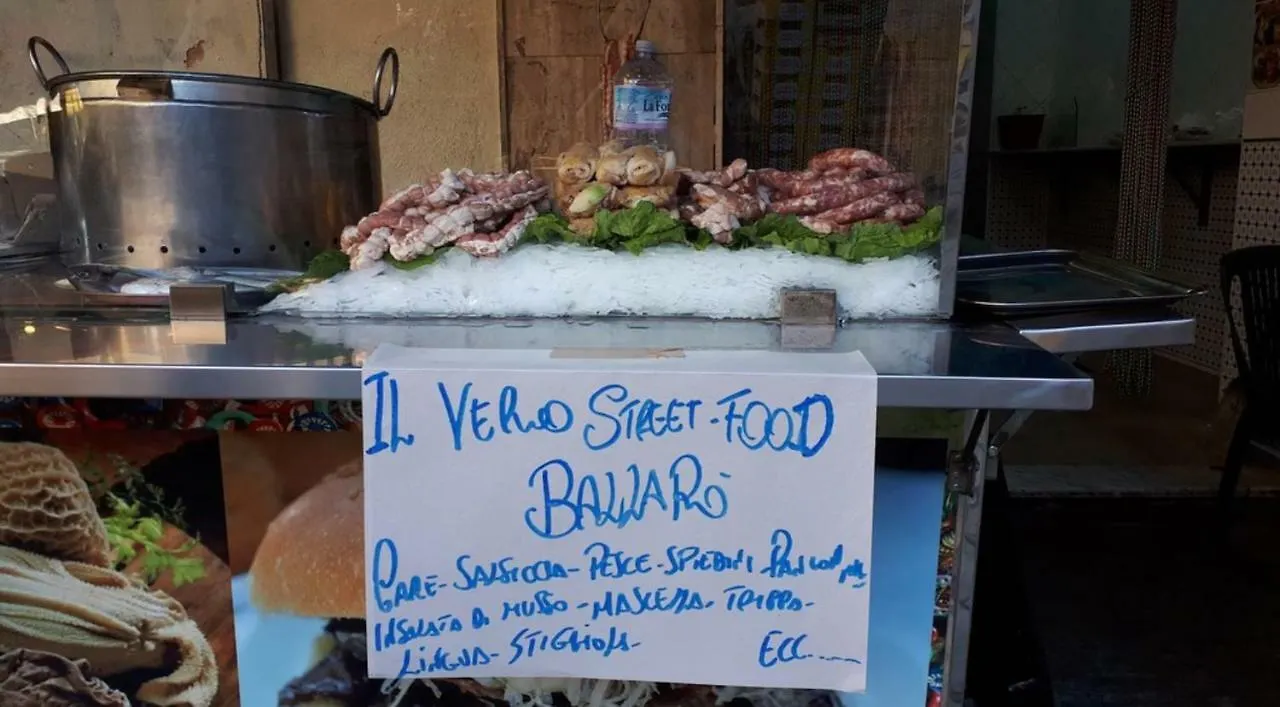 La For
IL VERO STREET-FOOD
BALLARÒ
CARE-SALSICCIA-PESCE-SPIEDINI PAN
INSALATA DI MUSSO-MASCELLA-TRIPPA-
LINGUA-STIGHIOLA- ECC.....